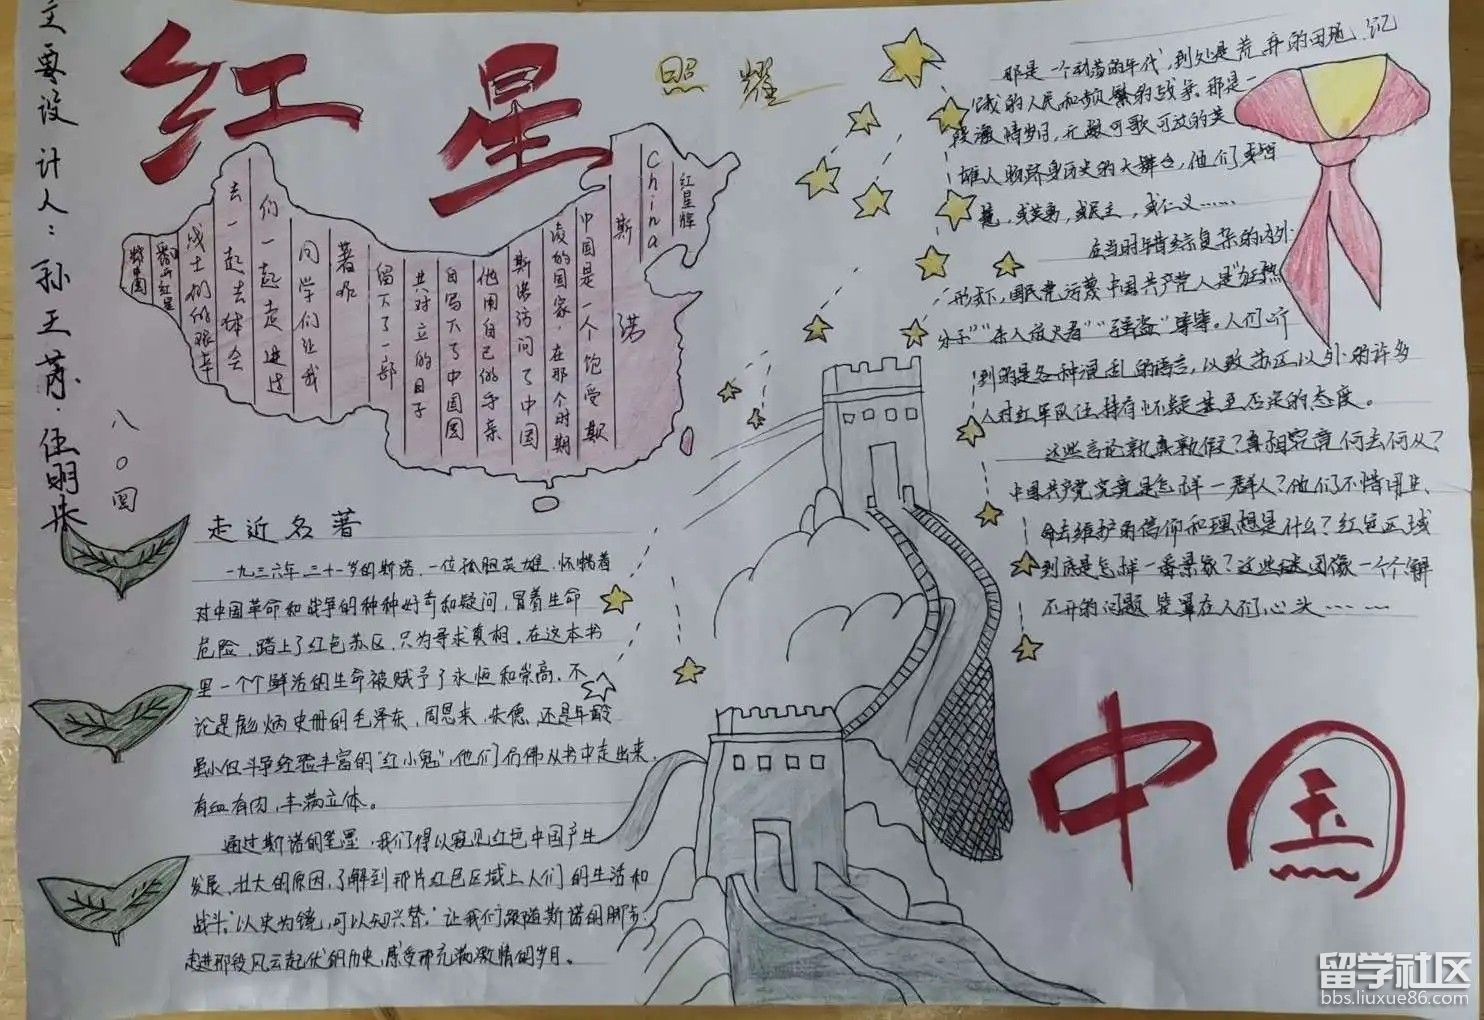 主要设计人：孙王芮·伍明朱
八〇图
红星
照耀
中国
红星辉
China
斯诺
中国是一个饱受欺
凌的国家，在那个时期
斯诺访问了中国
他用自己的手亲
自写下了中国国
共对立的日子
留下了一部
著作
同学们让我
们一起走进过
去一起去体会
战士们的艰辛
走近名著
一九三六年三十一岁的斯诺，一位孤胆英雄，怀惴着
对中国革命和战争的种种好奇和疑问，冒着生命
危险，踏上了红色苏区，只为寻求真相，在这本书
里一个个鲜活的生命被赋予了永恒和崇高，不
论是彪炳史册的毛泽东，周恩来，朱德，还是年龄
虽小但斗争经验丰富的"红小鬼"，他们仿佛从书中走出来，
有血有肉，丰满立体。
通过斯诺的笔墨，我们得以窥见红色中国产生
发展、壮大的原因，了解到那片红色区域上人们的生活和
战斗："以史为镜，可以知兴替。"让我们跟随斯诺的脚步，
走进那段风云起伏的历史，感受那充满激情的岁月。
那是一个动荡的年代，到处是荒弃的田地、记
饥饿的人民和频繁的战争。那是一
段激情岁月，无数可歌可泣的英
雄人物跻身历史的大舞台，他们或智
慧，或英勇，或民主，或仁义……
在当时错综复杂的内外
形式下，国民党污蔑中国共产党人是"狂热
分子""杀人放火者""强盗"等等。人们听
到的是各种混乱的语言，以致苏区以外的许多
人对红军队伍持有怀疑甚至否定的态度。
这些言论孰真孰假？真相究竟何去何从？
中国共产党究竟是怎样一群人？他们不惜用生
命去维护的信仰和理想是什么？红色区域
到底是怎样一番景象？这些谜团像一个个解
不开的问题笼罩在人们心头……
留学社区
bbs.liuxue86.com